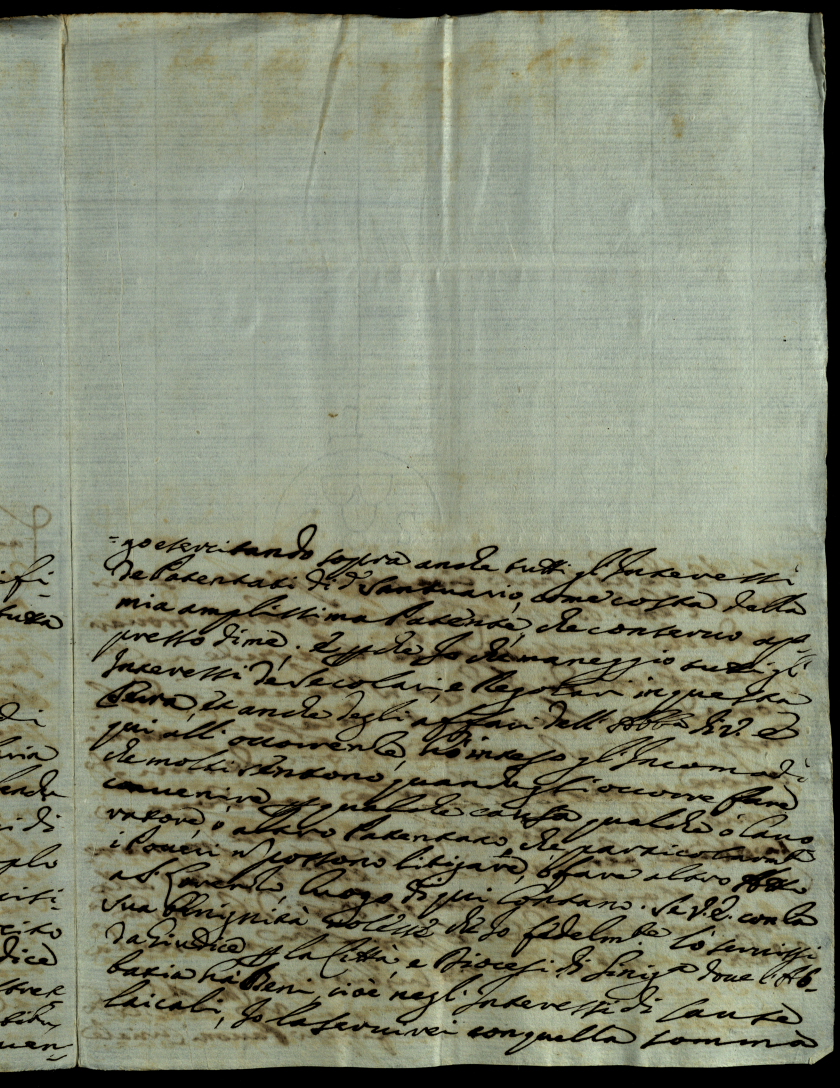 =go esercitando sopra anche tutti gl'Interessi
de Patentati di d.º Santuario, come costa della
mia amplissima Patente, che conservo ap=
presso di me. E perche Io che maneggio tutti gl'
Interessi de Secolari, e Regolari in questa
Curia, et anche degli affari dell'Abb.ª di V. E.
qui all'occorrenze, hò inteso gl'Incomodi
che molti sentono, quando gli occorre fare
convenire p qualche causa qualche ò Lavo
ratore, ò altro Patentato, che particolarmte
i Poveri nō possono litigare, ò fare altro Atto
al luogo di qui lontano. Se V. E. con la
sua Benignità volesse che Io fedelm.te lo servissi
da Giudice p la Città, e Diocesi di Sinig.ª dove l'Ab=
bazia hà Beni, cioè negl'Interessi di Cause
laicali, Io la servirei con quella somma
ifi=
tutta
di
aria
di
dice